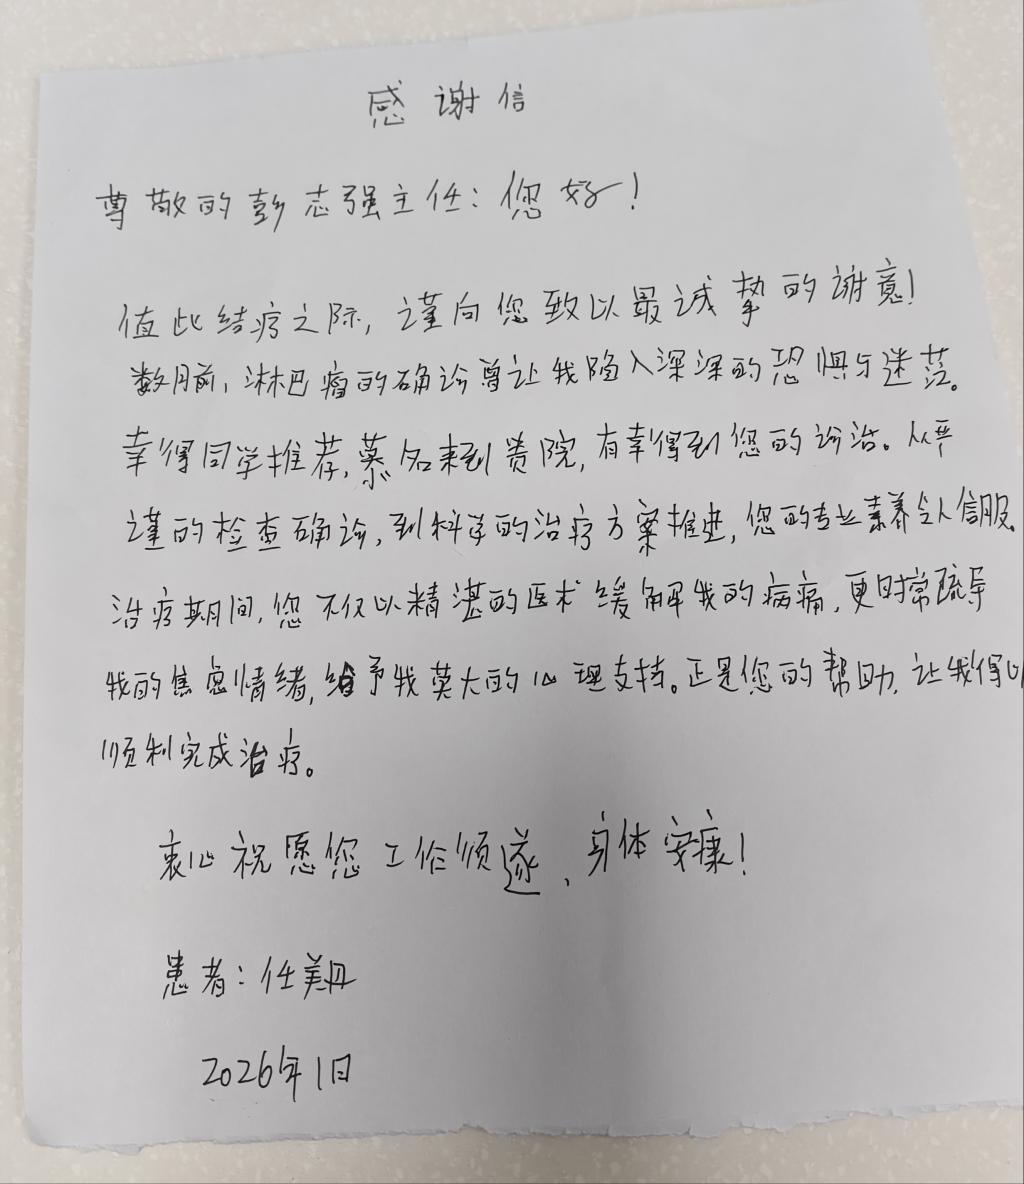 感谢信
尊敬的彭志强主任：您好！
值此结疗之际，谨向您致以最诚挚的谢意！
数月前，淋巴瘤的确诊曾让我陷入深深的恐惧与迷茫。
幸得同学推荐，慕名来到贵院，有幸得到您的诊治。从严
谨的检查确诊，到科学的治疗方案推进，您的专业素养令人信服。
治疗期间，您不仅以精湛的医术缓解我的病痛，更时常疏导
我的焦虑情绪，给予我莫大的心理支持。正是您的帮助，让我得以
顺利完成治疗。
衷心祝愿您工作顺遂，身体安康！
患者：任美丹
2026年1日